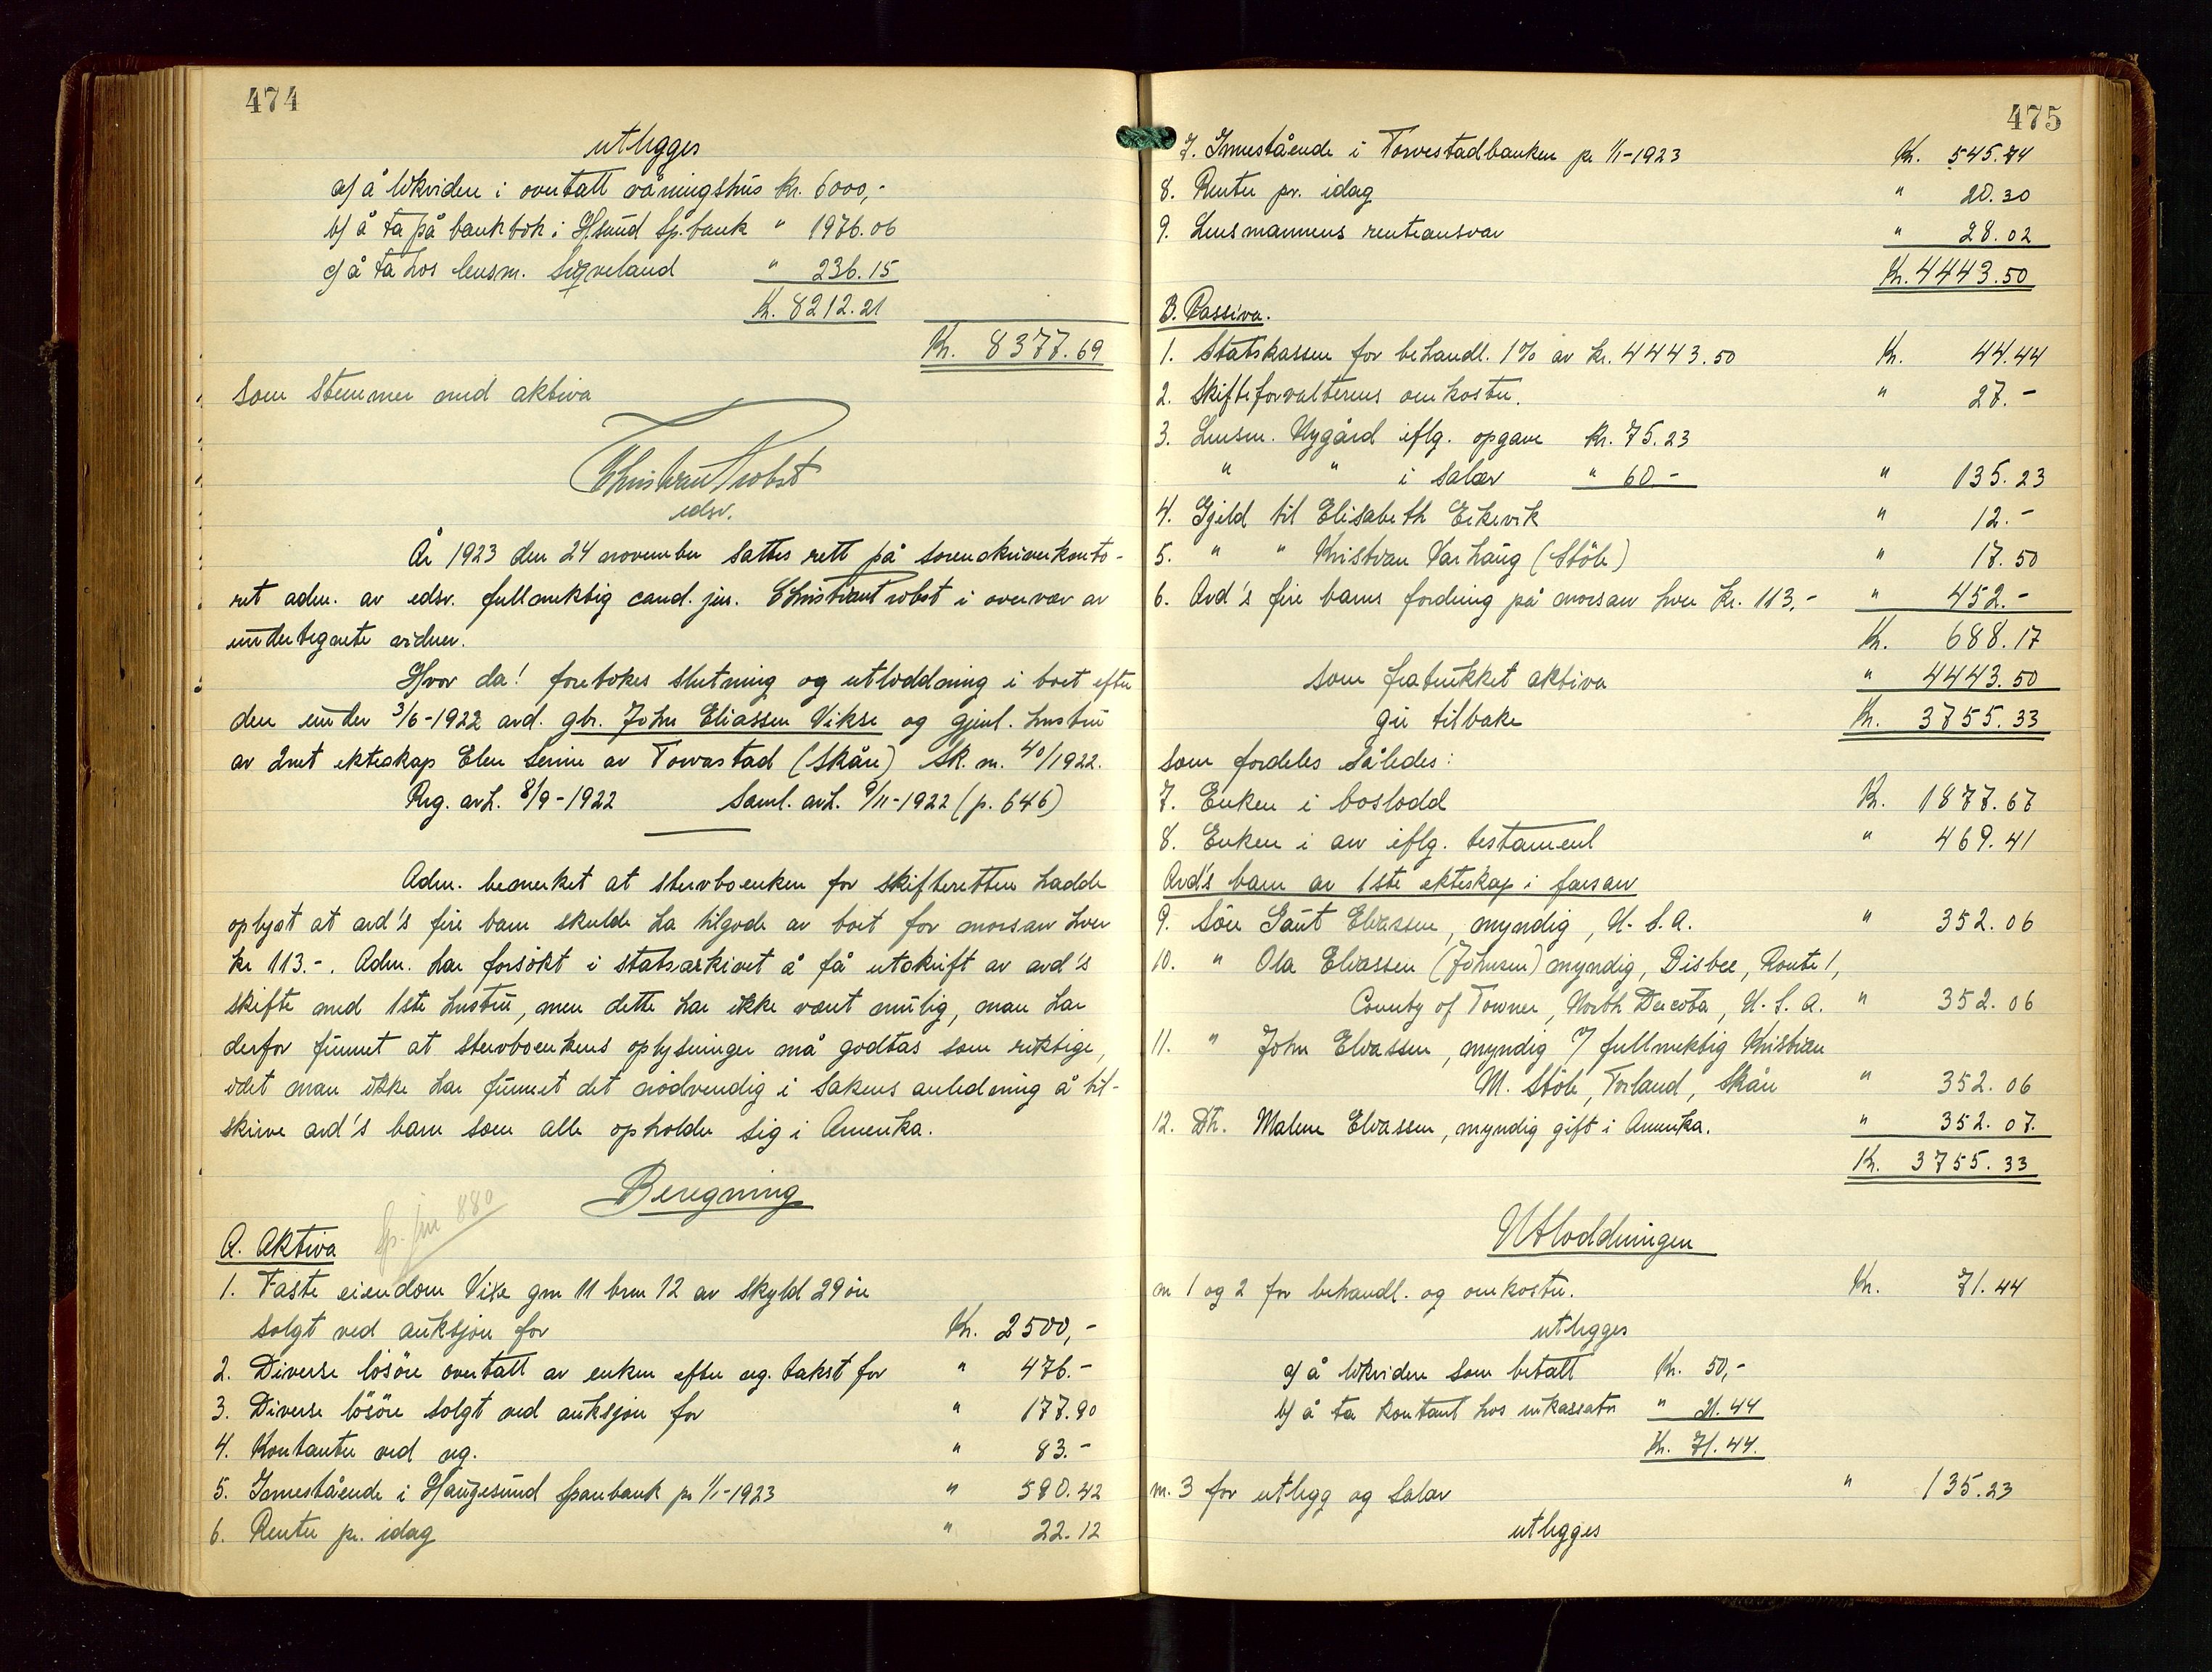 474
utlegges
a) å likvidere i overtatt våningshus kr. 6000,-
b) å ta på bankbok i H.sund Sp.bank " 1976.06
c) å ta hos lensm. Sigveland " 236.15
Kr. 8212.21
Kr. 8377.69
som stemmer med aktiva
Christian Probst
edsv.
År 1923 den 24 november sattes rett på sorenskriverkonto-
ret adm. av edsv. fullmektig cand. jur. Christian Probst i overvær av
undertegnete vidner.
Hvor da! foretokes slutning og utloddning i boet efter
den under 3/6-1922 avd. gbr. John Eliassen Vikse og gjenl. hustru
av 2net ekteskap Elen Serine av Torvastad (Skåre) Sk. nr. 40/1922.
Reg. avh. 8/9-1922 Saml. avh. 9/11-1922 (p. 646)
Adm. bemerket at stervboenken for skifteretten hadde
oplyst at avd's fire barn skulde ha tilgode av boet for morsarv hver
kr 113.-. Adm. har forsökt i statsarkivet å få utskrift av avd's
skifte med 1ste hustru, men dette har ikke vært mulig, man har
derfor funnet at stervboenkens oplysninger må godtas som riktige,
idet man ikke har funnet det nödvendig i sakens anledning å til-
skrive avd's barn som alle opholder sig i Amerika.
Beregning
A. Aktiva
1. Faste eiendom Vixe gnr 11 brnr 12 av skyld 29 öre
solgt ved auksjon for Kr. 2500,-
2. Diverse lösöre overtatt av enken efter reg. takst for " 476.-
3. Diverse lösöre solgt ved auksjon for " 177.90
4. Kontanter ved reg. " 83.-
5. Innestående i Haugesund Sparebank pr 1/1-1923 " 590.42
6. Renter pr. idag " 22.12
475
7. Innestående i Torvestadbanken pr 1/1-1923 Kr. 545.74
8. Renter pr. idag " 20.30
9. Lensmannens renteansvar " 28.02
Kr. 4443.50
B. Passiva.
1. Statskassen for behandl. 1% av kr. 4443.50 Kr. 44.44
2. Skifteforvalterens omkostn. " 27.-
3. Lensm. Nygård iflg. opgave Kr. 75.23
" " i salær " 60.- " 135.23
4. Gjeld til Elisabeth Eikevik " 12.-
5. " " Kristian Varhaug (Stöle) " 17.50
6. Avd's fire barns fordring på morsarv hver kr. 113,- " 452.-
Kr. 688.17
som fratrukket aktiva " 4443.50
gir tilbake Kr. 3755.33
som fordeles således:
7. Enken i boslodd Kr. 1877.67
8. Enken i arv iflg. testament " 469.41
Avd's barn av 1ste ekteskap i farsarv
9. Sön Gaut Eliassen, myndig, U.S.A. " 352.06
10. " Ola Eliassen (Johnsen) myndig, Bisbee, Route 1,
County of Towner, North Dacota, U.S.A. " 352.06
11. " John Eliassen, myndig v/ fullmektig Kristian
M. Stöle, Torland, Skåre " 352.06
12. Dtr. Malene Eliassen, myndig gift i Amerika. " 352.07.
Kr. 3755.33
Utloddningen
nr 1 og 2 for behandl. og omkostn. Kr. 71.44
utlegges
a) å likvidere som betalt Kr. 50,-
b) å ta kontant hos inkassator " 21.44
Kr. 71.44.
nr. 3 for utlegg og salær " 135.23
utlegges